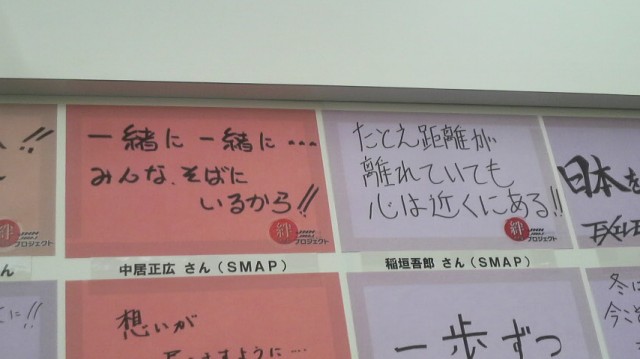 !!
一緒に 一緒に…
みんな、そばに
いるから!!
絆
プロジェクト
たとえ距離が
離れていても
心は近くにある!!
絆
プロジェクト
日本を
プロジェクト
さん
中居正広 さん（SMAP）
稲垣吾郎 さん（SMAP）
に!!
想いが
一歩ずつ
冬に